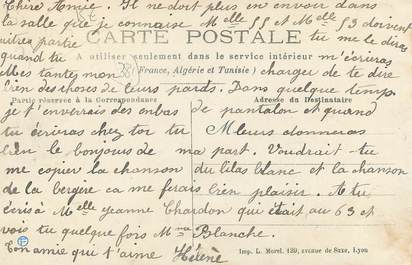 Chère Amie. Il ne doit plus en envoir dans
la salle que je connaise Melle 55 et Melle 53 doivent
être partie CARTE POSTALE tu me le diras
A utiliser seulement dans le service intérieur
quand tu m'écriras
Mes tantes mon (France, Algérie et Tunisie) charger de te dire
bien des choses de leurs pards. Dans quelque temps
Partie réservée à la Correspondance
Adresse du Destinataire
je t'enverrais des enbas de pantalon et quand
tu écriras chez toi tu leurs donneras
bien le bonjours de ma part. Voudrait tu
me copier la chanson du lilas blanc et la chanson
de la bergère ca me ferais bien plaisir. A tu
écris à Melle Jeanne Chardon qui était au 63 et
vois tu quelque fois Mma Blanche.
Ton amie qui t'aime Hélène
Imp. L. Morel, 129, avenue de Saxe, Lyon